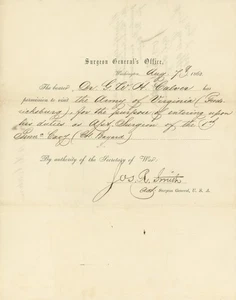 Surgeon General's Office,
Washington, Aug 7th 1862.
The bearer Dr. G. W. H. has
permission to visit the Army of Virginia (Frede
ricksburg), for the purpose of entering upon
his duties as Asst. Surgeon of the 1st
Penna Cavy (Col. Bayard)
By authority of the Secretary of War:
Jos. R. Smith
Surgeon General, U. S. A.